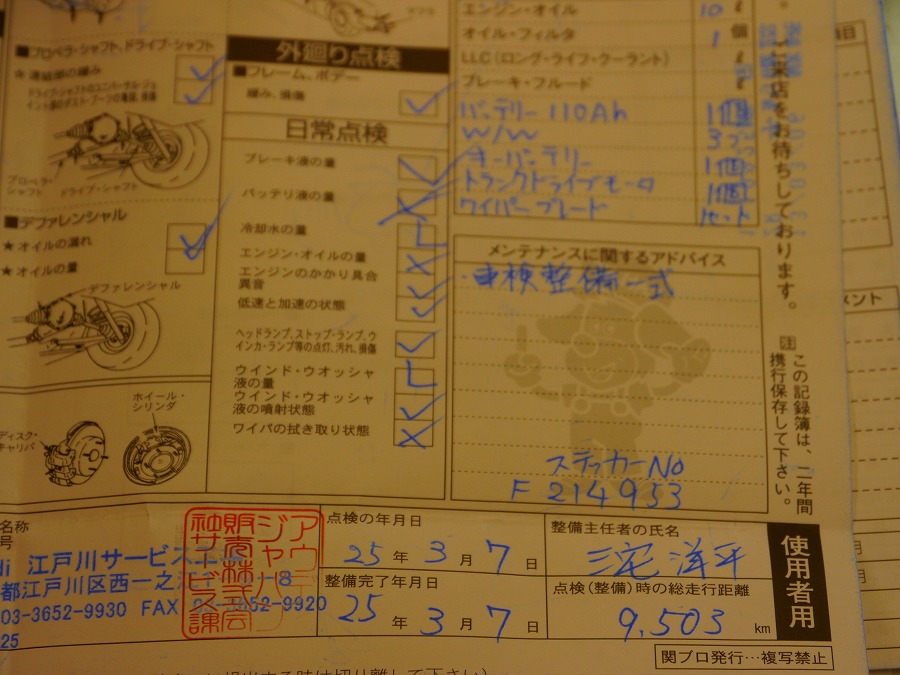 ■プロペラ・シャフト、ドライブ・シャフト
★ 連結部の緩み
ドライブ・シャフトのユニバーサル・ジョ
イント部のダスト・ブーツの亀裂、損傷
プロペラ・
シャフト
ドライブ・シャフト
■デファレンシャル
★ オイルの漏れ
★ オイルの量
デファレンシャル
ホイール・
シリンダ
ディスク・
キャリパ
外廻り点検
■フレーム、ボデー
緩み、損傷
日常点検
ブレーキ液の量
バッテリ液の量
冷却水の量
エンジン・オイルの量
エンジンのかかり具合
異音
低速と加速の状態
ヘッドランプ、ストップ・ランプ、ウ
インカ・ランプ等の点灯、汚れ、損傷
ウインド・ウオッシャ
液の量
ウインド・ウオッシャ
液の噴射状態
ワイパの拭き取り状態
エンジン・オイル 10 ℓ
オイル・フィルタ 1 個
LLC(ロング・ライフ・クーラント) ℓ
ブレーキ・フルード ℓ
バッテリー 110Ah 1個
W/W
キーバッテリー 1個
トランクドライブモータ 1個
ワイパーブレード 1セット
メンテナンスに関するアドバイス
・車検整備一式
ステッカーNo
F 214953
ご来店をお待ちしております。
注 この記録簿は、二年間
携行保存して下さい。
メント
名称
号
di 江戸川サービス
都江戸川区西一之江
03-3652-9930 FAX 03-3652-9920
25
アウディ
ジャパン
販売株式会
社サービス課
点検の年月日
25 年 3 月 7 日
整備完了年月日
25 年 3 月 7 日
整備主任者の氏名
三宅 洋平
点検(整備)時の総走行距離
9,503 km
使用者用
関ブロ発行…複写禁止